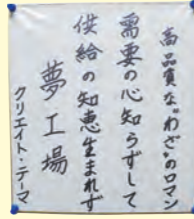 高品質な〝わざ〟のロマン
需要の心知らずして
供給の知恵生まれず
夢工場
クリエイト・テーマ